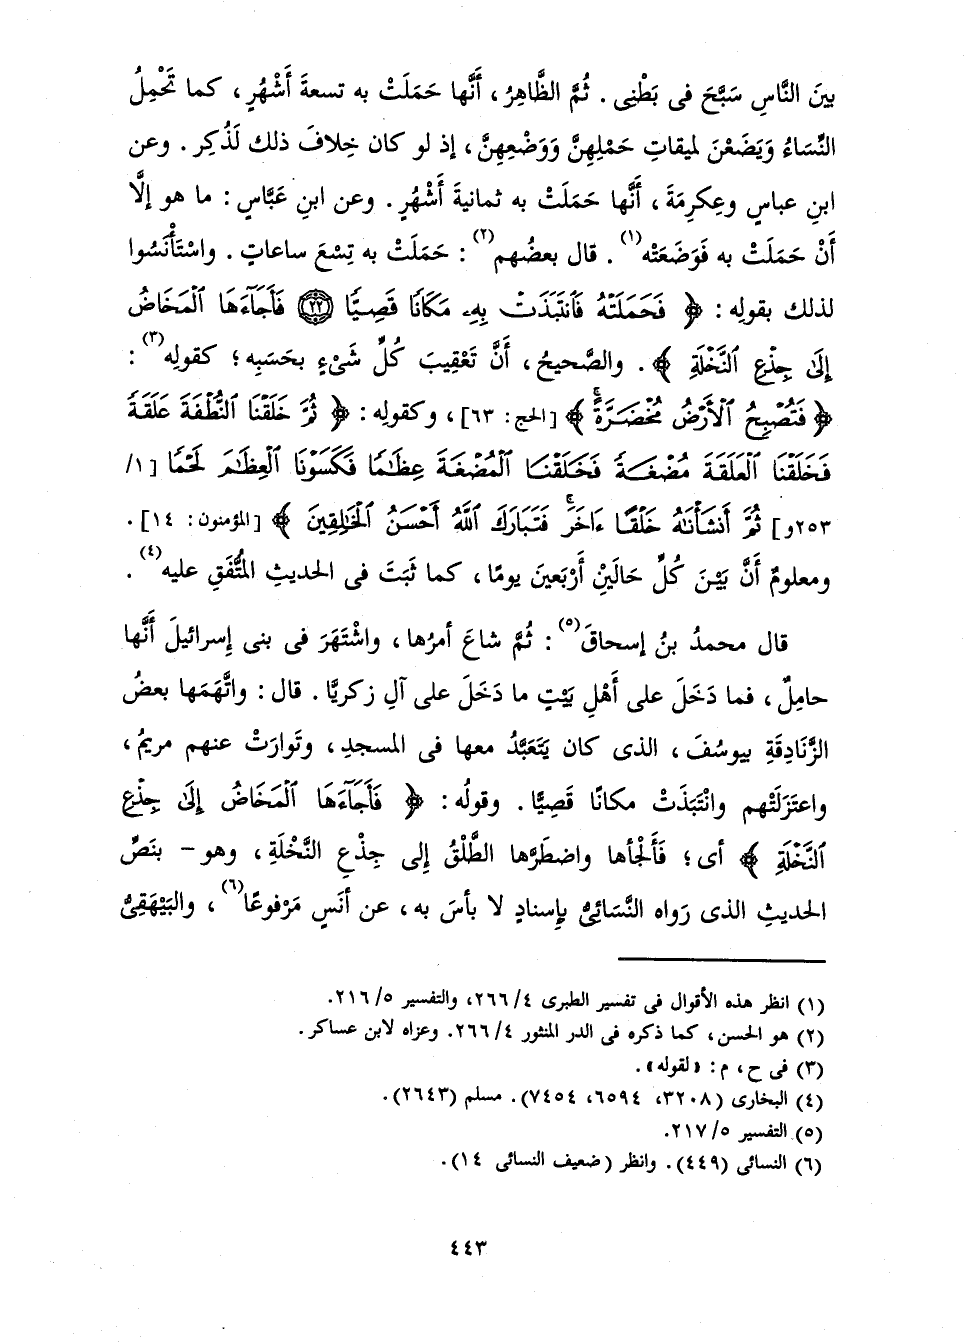 بينَ النَّاسِ سَبَّحَ فى بَطْنِى . ثُمَّ الظَّاهِرُ ، أَنَّها حَمَلَتْ به تسعةَ أَشْهُرٍ ، كما تَحْمِلُ
النِّسَاءُ وَيَضَعْنَ لميقاتِ حَمْلِهِنَّ وَوَضْعِهِنَّ ، إذ لو كان خِلافَ ذلك لَذُكِر . وعن
ابنِ عباسٍ وعِكرِمَةَ ، أَنَّها حَمَلَتْ به ثمانيةَ أَشْهُرٍ . وعن ابنِ عَبَّاسٍ : ما هو إلَّا
أَنْ حَمَلَتْ به فَوَضَعَتْه(١) . قال بعضُهم(٢) : حَمَلَتْ به تِسْعَ ساعاتٍ . واسْتَأْنَسُوا
لذلك بقولِه : ﴿ فَحَمَلَتْهُ فَٱنتَبَذَتْ بِهِۦ مَكَانًا قَصِيًّا ﴿٢٢﴾ فَأَجَآءَهَا ٱلْمَخَاضُ
إِلَىٰ جِذْعِ ٱلنَّخْلَةِ ﴾ . والصَّحيحُ ، أَنَّ تَعْقِيبَ كُلِّ شَىْءٍ بحَسَبِه ؛ كقولِه(٣) :
﴿ فَتُصْبِحُ ٱلْأَرْضُ مُخْضَرَّةً ۗ ﴾ [الحج: ٦٣] ، وكقولِه : ﴿ ثُمَّ خَلَقْنَا ٱلنُّطْفَةَ عَلَقَةً
فَخَلَقْنَا ٱلْعَلَقَةَ مُضْغَةً فَخَلَقْنَا ٱلْمُضْغَةَ عِظَٰمًا فَكَسَوْنَا ٱلْعِظَٰمَ لَحْمًا [١/
٢٥٣و] ثُمَّ أَنشَأْنَٰهُ خَلْقًا ءَاخَرَ ۚ فَتَبَارَكَ ٱللَّهُ أَحْسَنُ ٱلْخَٰلِقِينَ ﴾ [المؤمنون: ١٤] .
ومعلومٌ أَنَّ بَيْنَ كُلِّ حَالَيْنِ أَرْبَعينَ يومًا ، كما ثَبَتَ فى الحديثِ المتَّفَقِ عليه(٤) .
قال محمدُ بنُ إسحاقَ(٥) : ثُمَّ شاعَ أمرُها ، واشْتَهَرَ فى بنى إسرائيلَ أَنَّها
حامِلٌ ، فما دَخَلَ على أَهْلِ بَيْتٍ ما دَخَلَ على آلِ زكريَّا . قال : واتَّهَمَها بعضُ
الزَّنَادِقَةِ بيوسُفَ ، الذى كان يَتَعَبَّدُ معها فى المسجدِ ، وتَوارَتْ عنهم مريمُ ،
واعتَزَلَتْهم وانْتَبَذَتْ مكانًا قَصِيًّا . وقولُه : ﴿ فَأَجَآءَهَا ٱلْمَخَاضُ إِلَىٰ جِذْعِ
ٱلنَّخْلَةِ ﴾ أى ؛ فَأَلْجَأها واضطَرَّها الطَّلْقُ إلى جِذْعِ النَّخْلَةِ ، وهو - بنَصِّ
الحديثِ الذى رَواه النَّسَائىُّ بإسنادٍ لا بأسَ به ، عن أنَسٍ مَرْفوعًا(٦) ، والبَيْهَقِىُّ
(١) انظر هذه الأقوال فى تفسير الطبرى ٤/ ٢٦٦، والتفسير ٥/ ٢١٦.
(٢) هو الحسن، كما ذكره فى الدر المنثور ٤/ ٢٦٦. وعزاه لابن عساكر.
(٣) فى ح، م: «لقوله».
(٤) البخارى (٣٢٠٨، ٦٥٩٤، ٧٤٥٤). مسلم (٢٦٤٣).
(٥) التفسير ٥/ ٢١٧.
(٦) النسائى (٤٤٩). وانظر (ضعيف النسائى ١٤).
٤٤٣